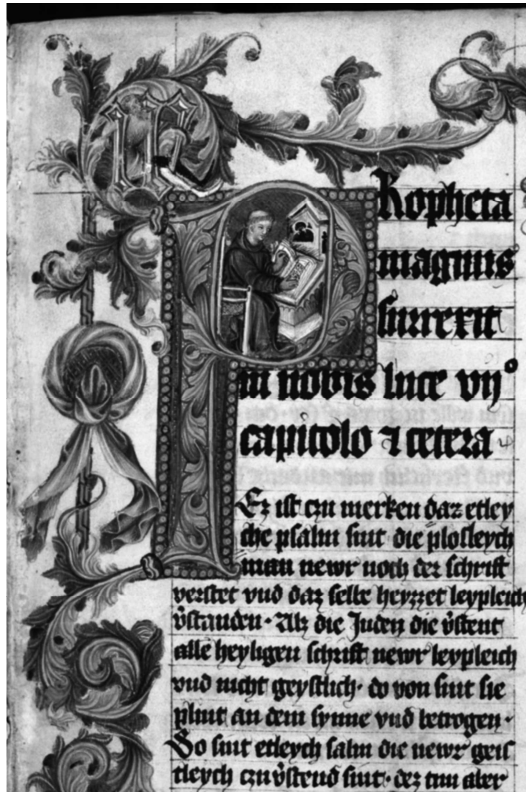 Propheta
magnus
surrexit
in nobis luce vijº
capitolo ⁊ cetera
Ez ist czu merken daz etley
che psalm sint die plosleych
man newr noch der schrift
verstet vnd daz selbe heyzzet leypleich
v̄standen· Alz die Juden die v̄stent
alle heyligen schrift newr leypleich
vnd nicht geystlich· do von sint sie
plint an dem synne vnd betrogen·
So sint etleych salm die newr geis
tleych czu v̄stend sint· dez tun aber